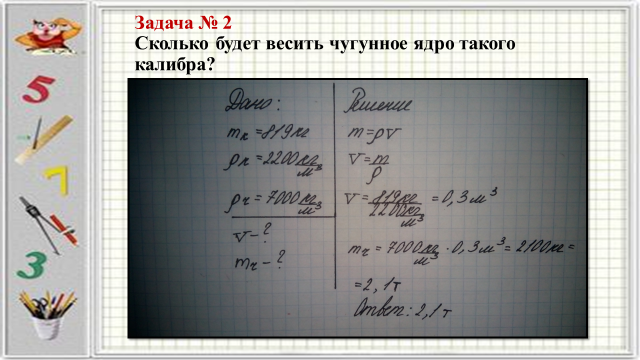 Задача № 2
Сколько будет весить чугунное ядро такого
калибра?
Дано:
mк = 819 кг
ρк = 2200 кг/м³
ρч = 7000 кг/м³
V - ?
mч - ?
Решение
m = ρV
V = m/ρ
V = 819 кг/2200 кг/м³ = 0,3 м³
mч = 7000 кг/м³ · 0,3 м³ = 2100 кг =
= 2,1 т
Ответ: 2,1 т
5
7
3